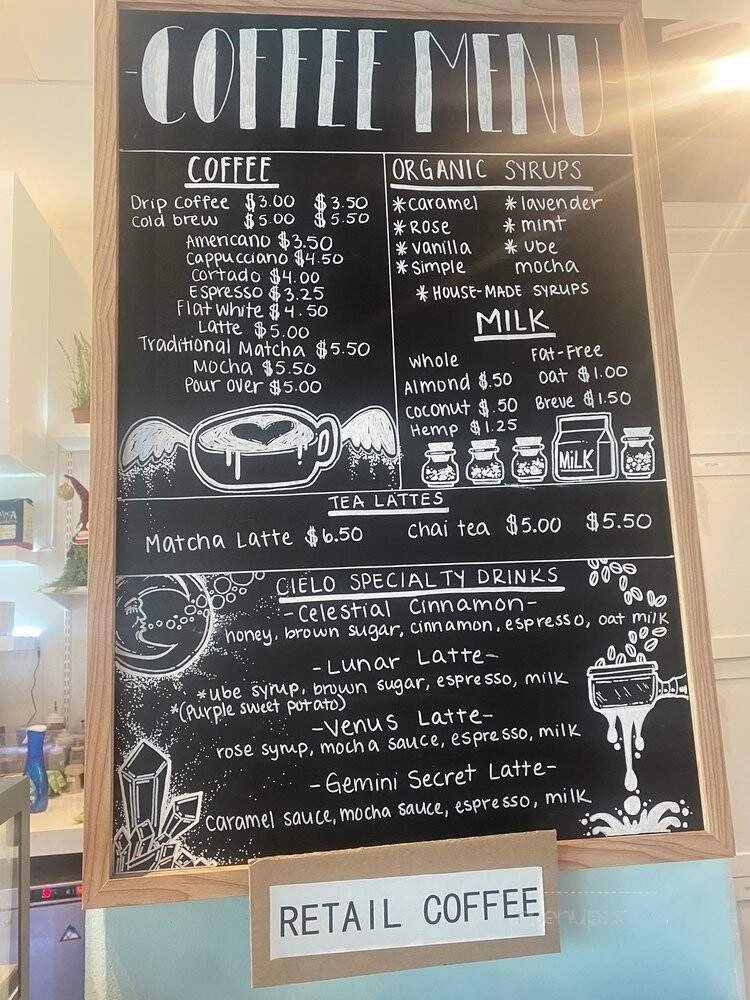 -COFFEE MENU-
COFFEE
Drip Coffee $3.00 $3.50
Cold brew $5.00 $5.50
Americano $3.50
Cappucciano $4.50
Cortado $4.00
Espresso $3.25
Flat White $4.50
Latte $5.00
Traditional Matcha $5.50
Mocha $5.50
Pour over $5.00
ORGANIC SYRUPS
*caramel *lavender
*Rose *mint
*vanilla *ube
*simple mocha
*HOUSE-MADE SYRUPS
MILK
Whole Fat-Free
Almond $.50 Oat $1.00
Coconut $.50 Breve $1.50
Hemp $1.25
MiLK
TEA LATTES
Matcha Latte $6.50 Chai tea $5.00 $5.50
CIELO SPECIALTY DRINKS
-Celestial Cinnamon-
honey, brown sugar, cinnamon, espresso, oat milk
-Lunar Latte-
*ube syrup, brown sugar, espresso, milk
*(Purple sweet potato)
-Venus Latte-
rose syrup, mocha sauce, espresso, milk
-Gemini Secret Latte-
Caramel sauce, mocha sauce, espresso, milk
RETAIL COFFEE